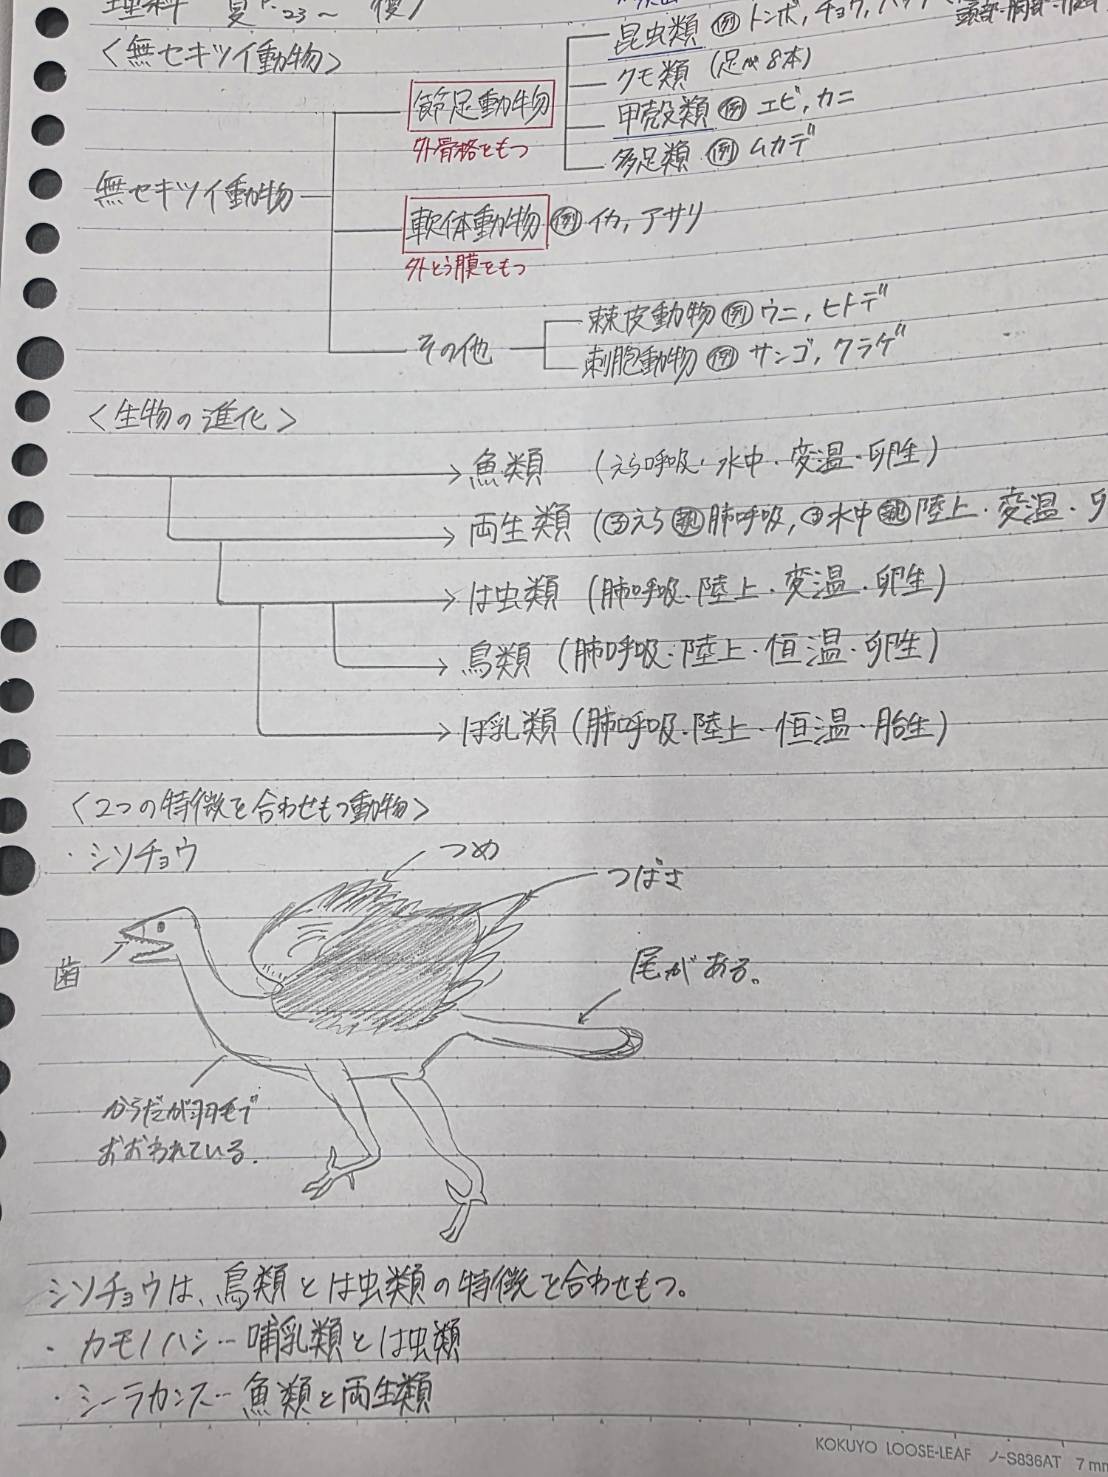 理科 夏P.23～ 復)
〈無セキツイ動物〉
昆虫類 例 トンボ,チョウ,バッ
頭部・胸部・
クモ類 (足が8本)
節足動物
甲殻類 例 エビ,カニ
外骨格をもつ
多足類 例 ムカデ
無セキツイ動物
軟体動物 例 イカ,アサリ
外とう膜をもつ
その他
棘皮動物 例 ウニ,ヒトデ
刺胞動物 例 サンゴ,クラゲ
〈生物の進化〉
魚類 (えら呼吸・水中・変温・卵生)
両生類 (子えら親肺呼吸,子水中親陸上・変温・卵
は虫類 (肺呼吸・陸上・変温・卵生)
鳥類 (肺呼吸・陸上・恒温・卵生)
ほ乳類 (肺呼吸・陸上・恒温・胎生)
〈2つの特徴を合わせもつ動物〉
・シソチョウ
つめ
つばさ
歯
尾がある。
からだが羽毛で
おおわれている.
シソチョウは、鳥類とは虫類の特徴を合わせもつ。
・カモノハシ…哺乳類とは虫類
・シーラカンス…魚類と両生類
KOKUYO LOOSE-LEAF ノ-S836AT 7mm